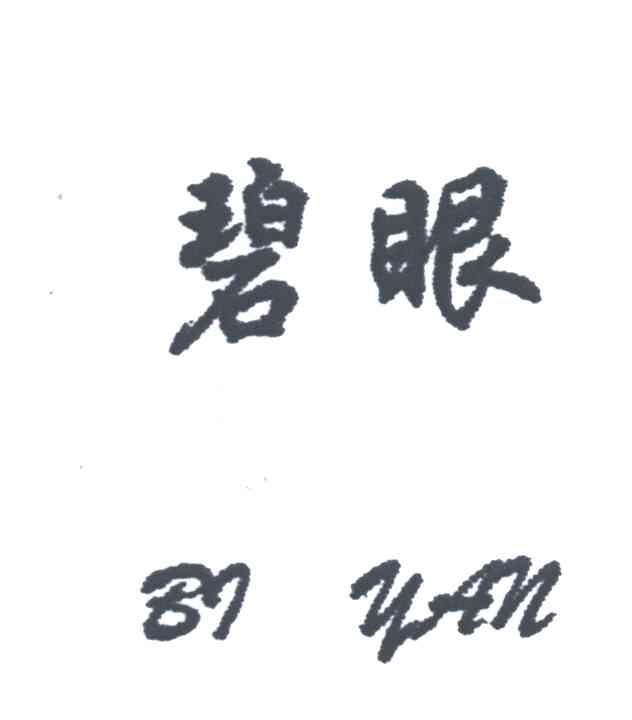 碧眼
BI YAN